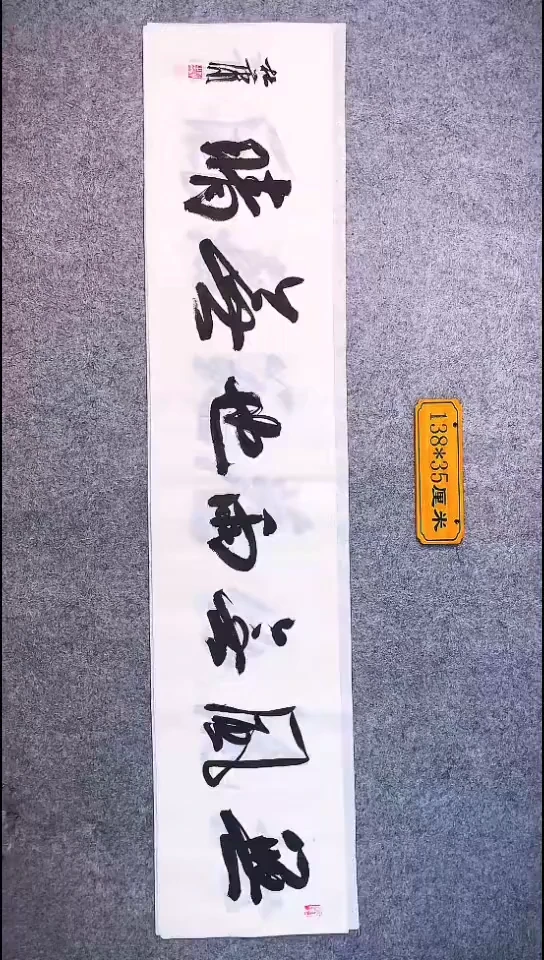 無風無雨也無晴
138*35厘米